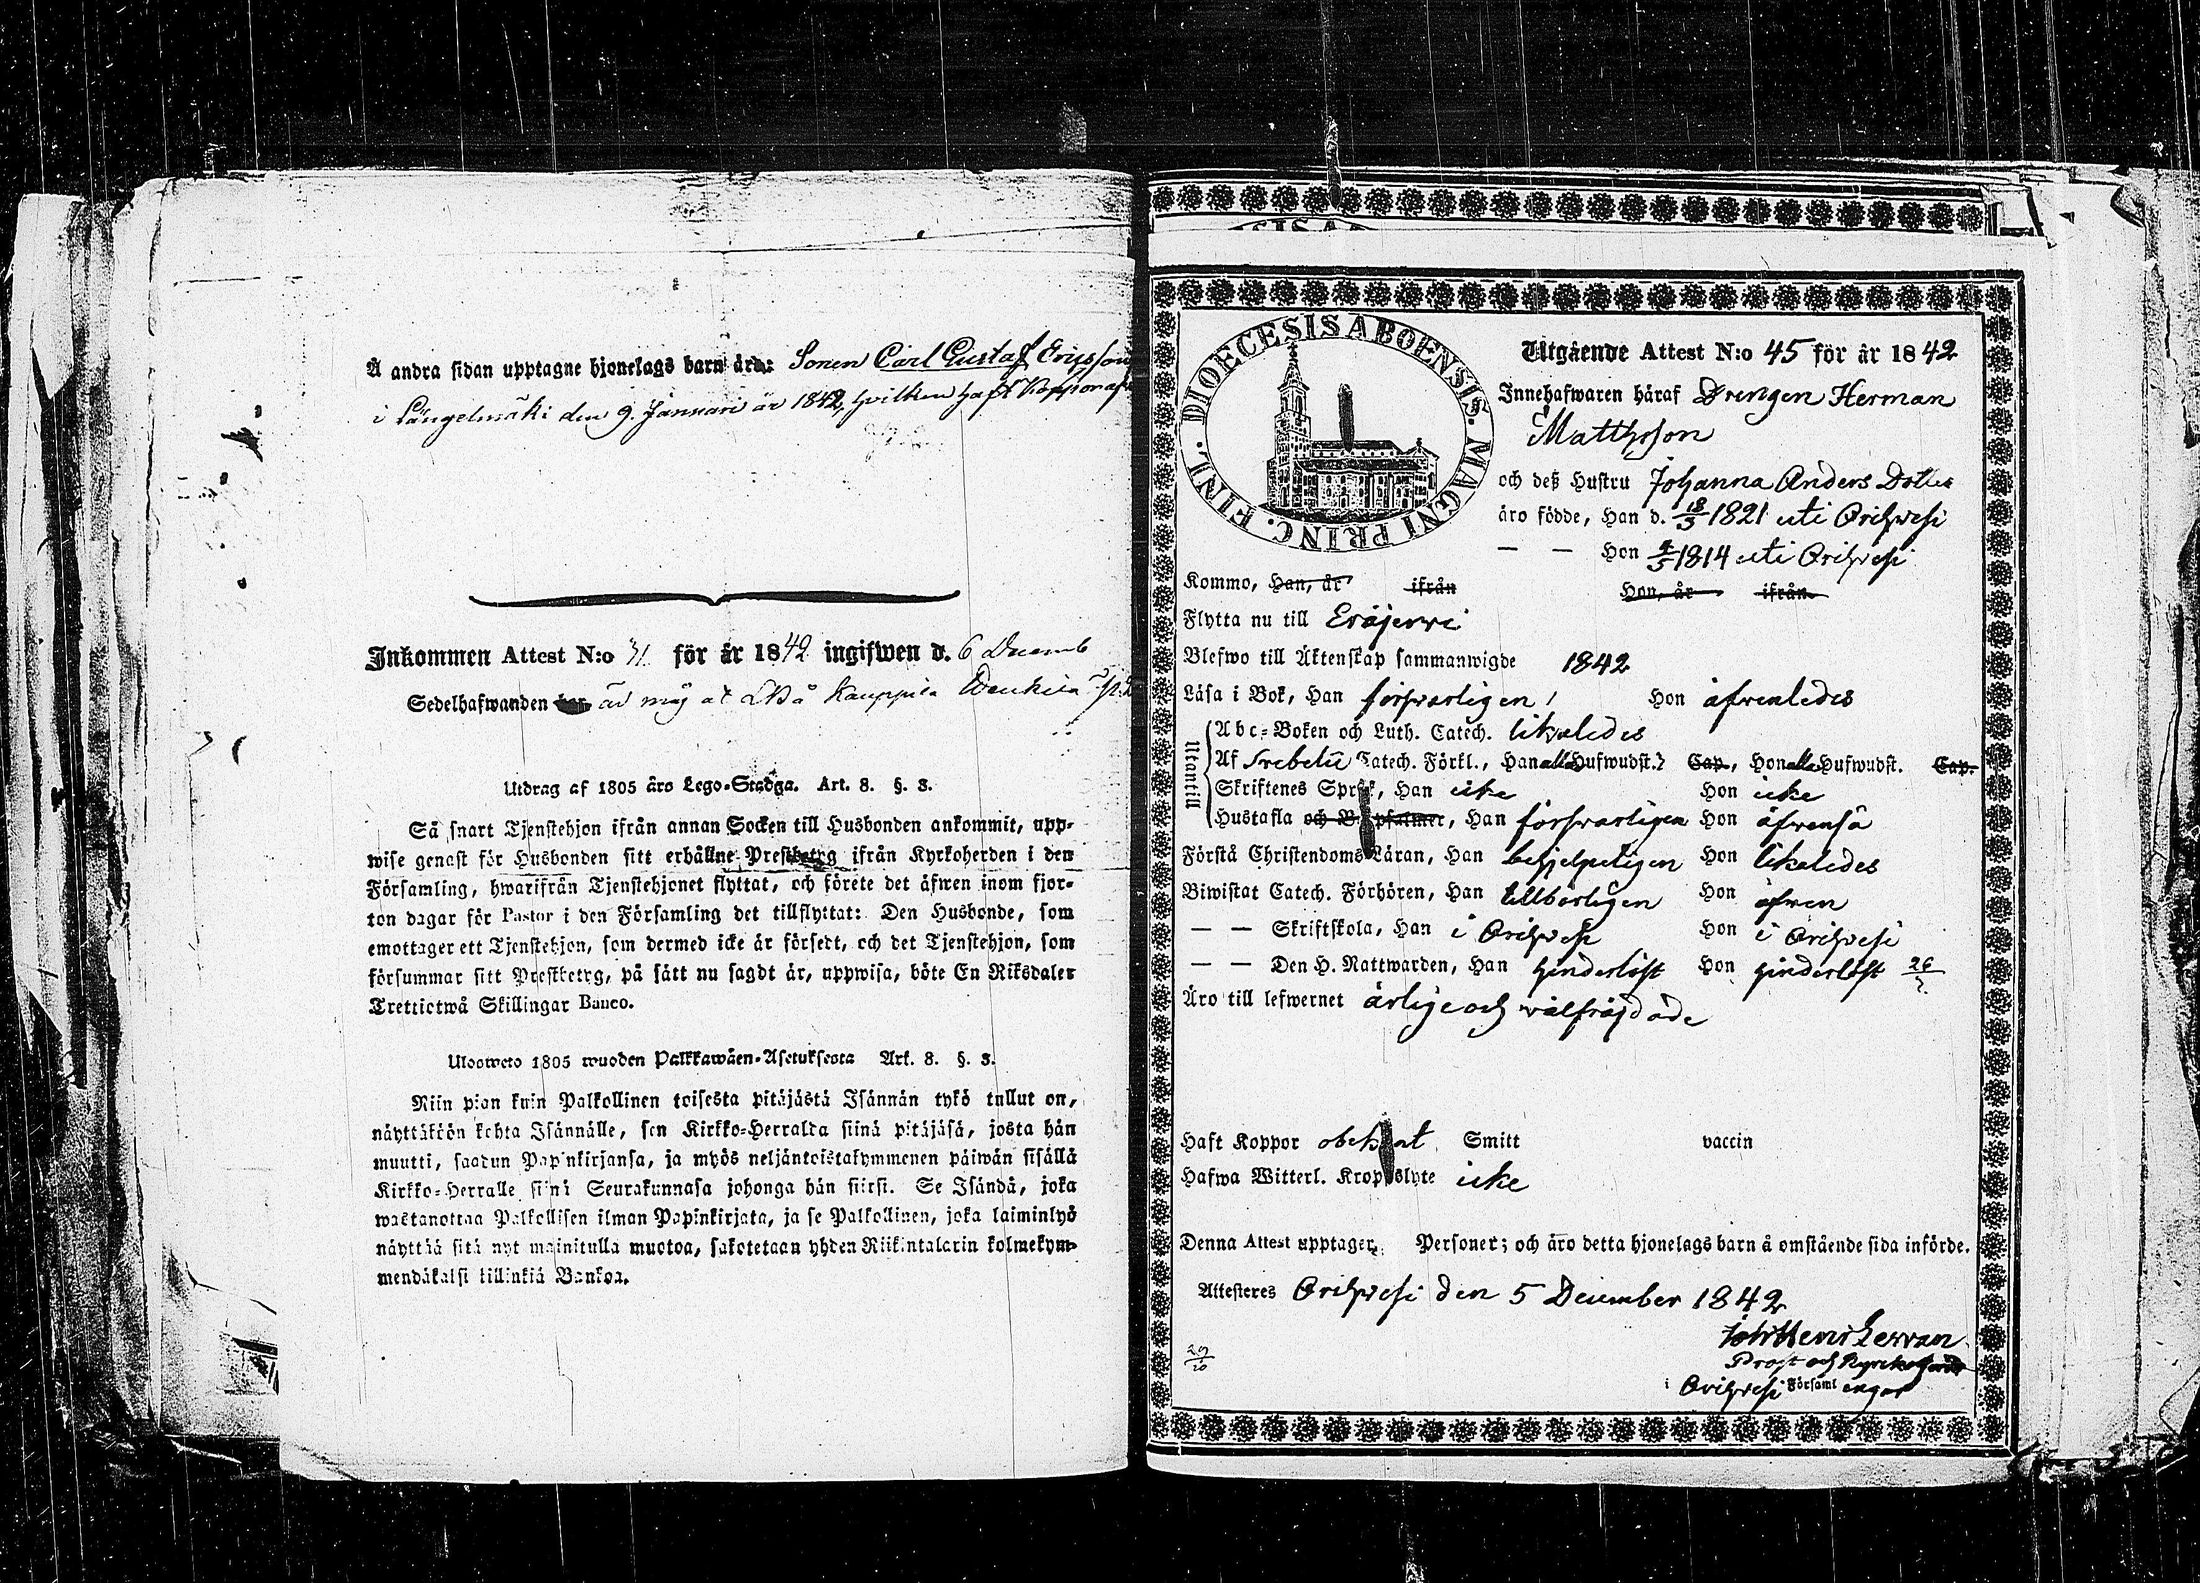 Å andra sidan upptagne hjonelags barn äro: Sonen Carl Gustaf Ericsson
i Längelmäki den 9. Januari år 1842, hvilken haft Kopporna
Inkommen Attest N:o 31 för år 1842 ingifwen d. 6 Decemb
Sedelhafwanden är
Utdrag af 1805 års Lego-Stadga. Art. 8. §. 3.
Så snart Tjenstehjon ifrån annan Socken till Husbonden ankommit, upp-
wise genast för Husbonden sitt erhållne Prestbetyg ifrån Kyrkoherden i den
Församling, hwarifrån Tjenstehjonet flyttat, och förete det äfwen inom fjor-
ton dagar för Pastor i den Församling det tillflyttat: Den Husbonde, som
emottager ett Tjenstehjon, som dermed icke är försedt, och det Tjenstehjon, som
försummar sitt Prestbetyg, på sätt nu sagdt är, uppwisa, böte En Riksdaler
Trettiotwå Skillingar Banco.
Ulosweto 1805 wuoden Palkkawäen-Asetuksesta Art. 8. §. 3.
Niin pian kuin Palkollinen toisesta pitäjästä Isännän tykö tullut on,
näyttäköön kohta Isännälle, sen Kirkko-Herralda siinä pitäjäsä, josta hän
muutti, saadun Papinkirjansa, ja myös neljäntoistakymmenen päiwän sisällä
Kirkko-Herralle siinä Seurakunnasa johonga hän siirsi. Se Isändä, joka
wastanottaa Palkollisen ilman Papinkirjata, ja se Palkollinen, joka laiminlyö
näyttää sitä nyt mainitulla muotoa, sakotetaan yhden Riikintalarin kolmekym-
mendäkaksi killinkiä Bankoa.
DIOECESIS ABOENSIS. MAGNI PRINC. FINL.
Utgående Attest N:o 45 för år 1842
Innehafwaren häraf Drengen Herman
Matthsson
och deß Hustru Johanna Anders Dotter
äro födde, Han d. 18/3 1821 uti Orihwesi
— — Hon 1814 uti Orihwesi
Kommo, Han, år ifrån Hon, år ifrån
Flytta nu till Eräjerwi
Blefwo till Äktenskap sammanwigde 1842
Läsa i Bok, Han förswarligen Hon äfwenledes
Utantill
Abc-Boken och Luth. Catech. likaledes
Af Srebelii Catech. Förkl., Han alla Hufwudst. Cap., Hon alla Hufwudst. Cap.
Skriftenes Språk, Han icke Hon icke
Hustafla och Botpsalmer, Han förswarligen Hon äfwenså
Förstå Christendoms Läran, Han behjelpeligen Hon likaledes
Biwistat Catech. Förhören, Han tillbörligen Hon äfwen
— — Skriftskola, Han i Orihwesi Hon i Orihwesi
— — Den H. Nattwarden, Han hinderlöst Hon hinderlöst
Äro till lefwernet ärlige och wälfräjdade
Haft Koppor obekant Smitt vaccin
Hafwa Witterl. Kroppslyte icke
Denna Attest upptager Personer; och äro detta hjonelags barn å omstående sida införde.
Attesteres Orihwesi den 5 December 1842
Prost och Kyrkoherde
i Orihwesi Församlingar
29/10